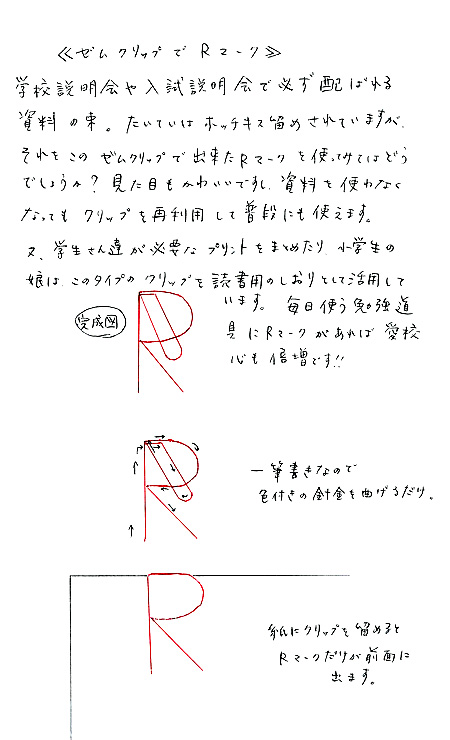 ≪ゼムクリップでRマーク≫
学校説明会や入試説明会で必ず配ばれる
資料の束。たいていはホッチキス留めされていますが、
それをこのゼムクリップで出来たRマークを使ってみてはどう
でしょうか?見た目もかわいいですし、資料を使わなく
なってもクリップを再利用して普段にも使えます。
又、学生さん達が必要なプリントをまとめたり、小学生の
娘は、このタイプのクリップを読書用のしおりとして活用して
います。毎日使う勉強道
完成図
具にRマークがあれば愛校
心も倍増です!!
一筆書きなので
色付きの針金を曲げるだけ。
紙にクリップを留めると
Rマークだけが前面に
出ます。